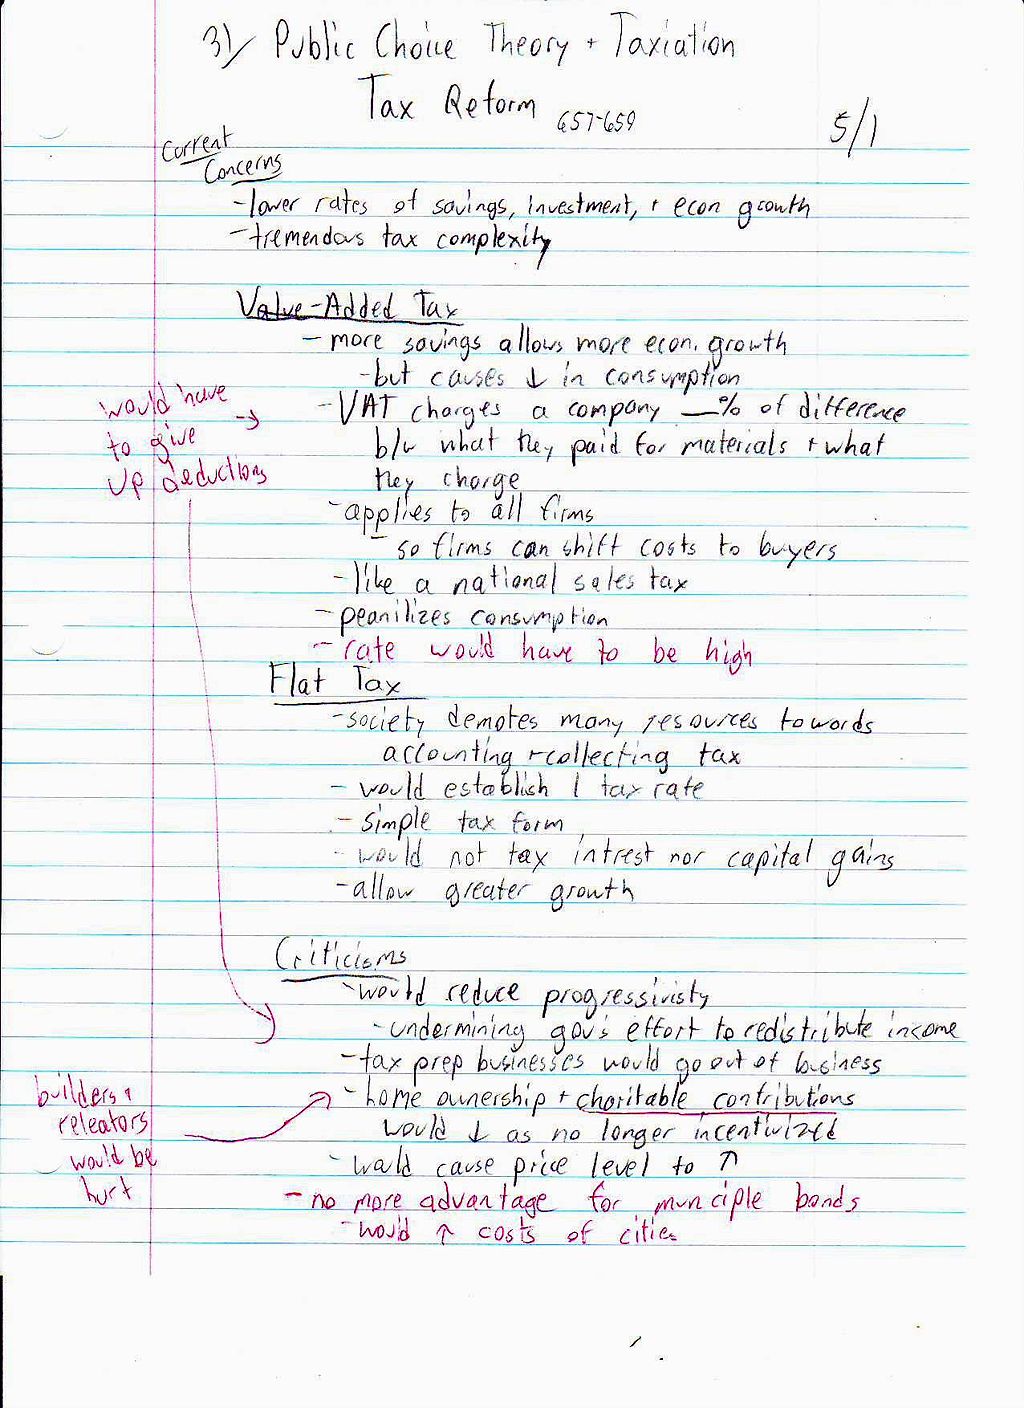 31/ Public Choice Theory + Taxiation
Tax Reform 657-659
5/1
Current
Concerns
-lower rates of savings, investment, + econ growth
-tremendous tax complexity
Value-Added Tax
- more savings allows more econ. growth
-but causes ↓ in consumption
- VAT charges a company __% of difference
b/w what they paid for materials + what
they charge
-applies to all firms
- so firms can shift costs to buyers
-like a national sales tax
- peanilizes consumption
- rate would have to be high
would have →
to give
up deductions
Flat Tax
-society demotes many resources towords
accounting +collecting tax
- would establish 1 tax rate
- simple tax form
- would not tax intrest nor capital gains
-allow greater growth
Criticisms
-would reduce progressivisty
-undermining gov's effort to redistribute income
-tax prep businesses would go out of business
- home ownership + charitable contributions
would ↓ as no longer incentivized
- would cause price level to ↑
- no more advantage for munciple bonds
-would ↑ costs of cities
builders +
releators
would be
hurt